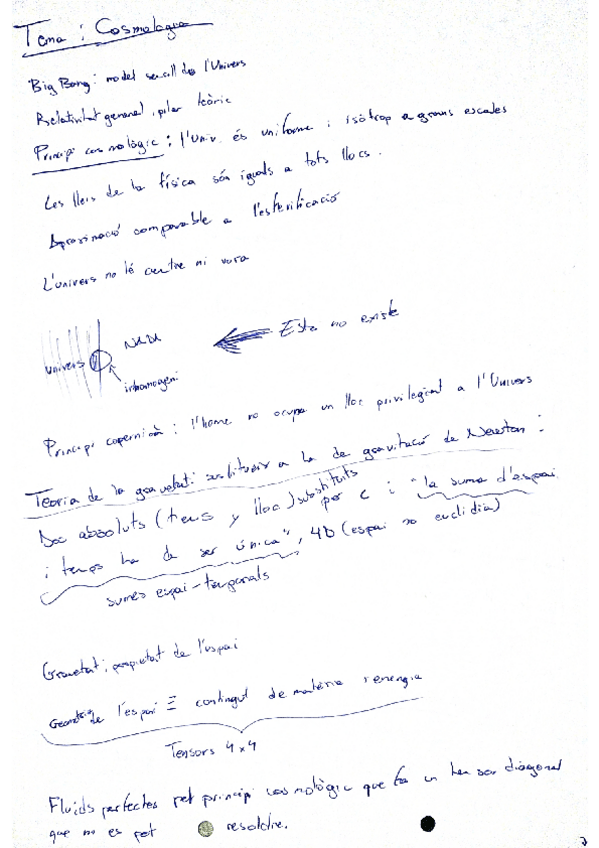 Tema: Cosmologia
Big Bang: model senzill de l'Univers
Relativitat general, pilar teòric
Principi cosmològic: l'Univ. és uniforme i isòtrop a grans escales
Les lleis de la física són iguals a tots llocs.
Aproximació comparable a l'esferificació
L'univers no té centre ni vora
NADA
Esto no existe
univers
inhomogeni
Principi copernicà: l'home no ocupa un lloc privilegiat a l'Univers
Teoria de la gravetat: substituir a la de gravitació de Newton:
Dos absoluts (temps y lloc) substituïts por c i "la suma d'espai
i temps ha de ser única", 4D (espai no euclidià)
sumes espai-temporals
Gravetat: propietat de l'espai
Geometria de l'espai ≡ contingut de matèria i energia
Tensors 4x4
Fluids perfectes pel principi cosmològic que fa un ser diagonal
que no es pot resoldre.